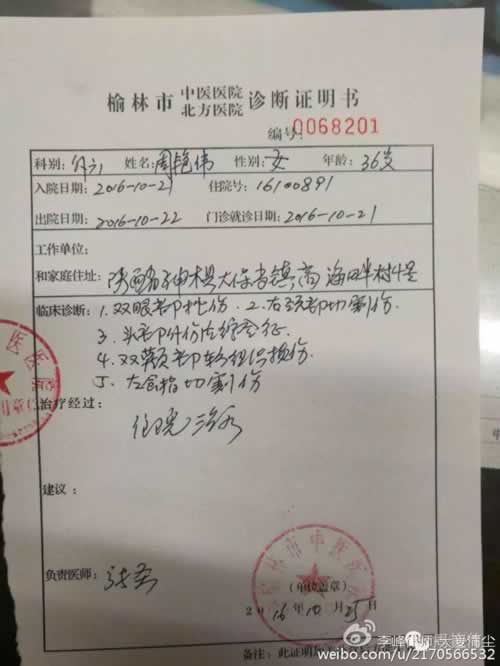 榆林市 中医医院 北方医院 诊断证明书
编号: 0068201
科别: 外六 姓名: 周艳伟 性别: 女 年龄: 36岁
入院日期: 2016-10-21 住院号: 16100891
出院日期: 2016-10-22 门诊就诊日期: 2016-10-21
工作单位:
和家庭住址: 陕西省神木县大保当镇 海畔村4号
临床诊断: 1. 双眼部挫伤. 2. 右颈部切割伤
3. 头部外伤 综合征.
4. 双颞部软组织损伤.
5. 左食指切割伤
治疗经过:
住院
建议:
负责医师:
(单位盖章)
2016年10月25日
备注: 此证明
weibo.com/u/2170566532